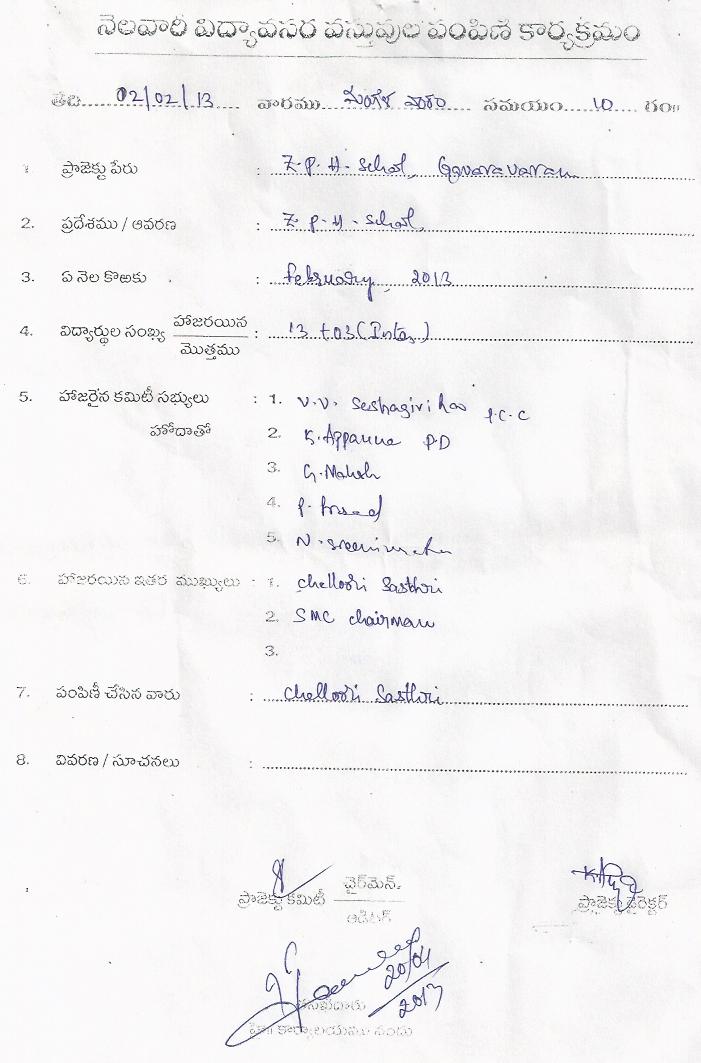 నెలవారీ విద్యావసర వస్తువుల పంపిణీ కార్యక్రమం
తేది 02/02/13 వారము మంగళ వారం సమయం 10 గం॥
1. ప్రాజెక్టు పేరు : Z.P.H. School, Gavaravaram
2. ప్రదేశము / ఆవరణ : Z.P.H. School,
3. ఏ నెల కొఱకు : february, 2013
4. విద్యార్థుల సంఖ్య హాజరయిన / మొత్తము : 13 + 03 (Inter)
5. హాజరైన కమిటీ సభ్యులు : 1. V.V. Seshagiri Rao P.C.C
హోదాతో 2. K. Appanna PD
3. G. Mahesh
4. P. Prasad
5. N.
6. హాజరయిన ఇతర ముఖ్యులు : 1. Chelloori Sasthri
2. SMC chairman
3.
7. పంపిణీ చేసిన వారు : Chelloori Sasthri
8. వివరణ / సూచనలు :
ప్రాజెక్టు కమిటీ ఛైర్‌మెన్ / ఆడిటర్
ప్రాజెక్టు డైరెక్టర్
20/04
2013
తనిఖీదారు
హె॥ కార్యాలయము నందు